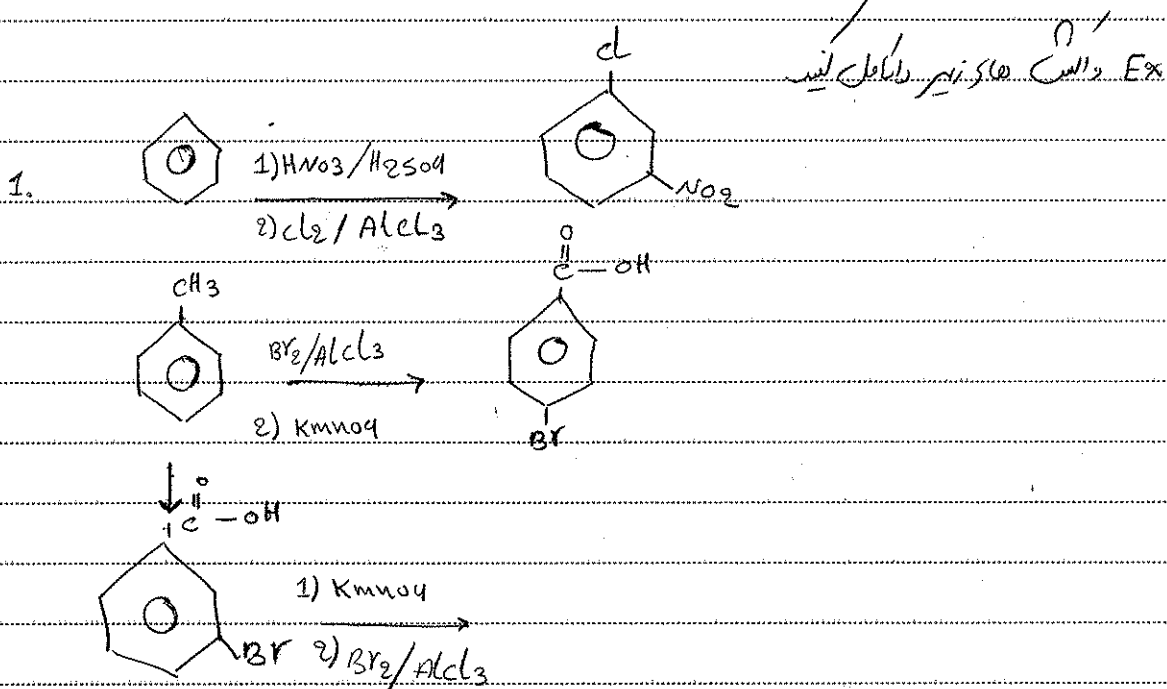 Ex واکنش های زیر را کامل کنید
Cl
1.
1) HNO3/H2SO4
2) Cl2/AlCl3
NO2
O
C—OH
CH3
Br2/AlCl3
2) KmnO4
Br
O
C—OH
1) KmnO4
Br
2) Br2/AlCl3